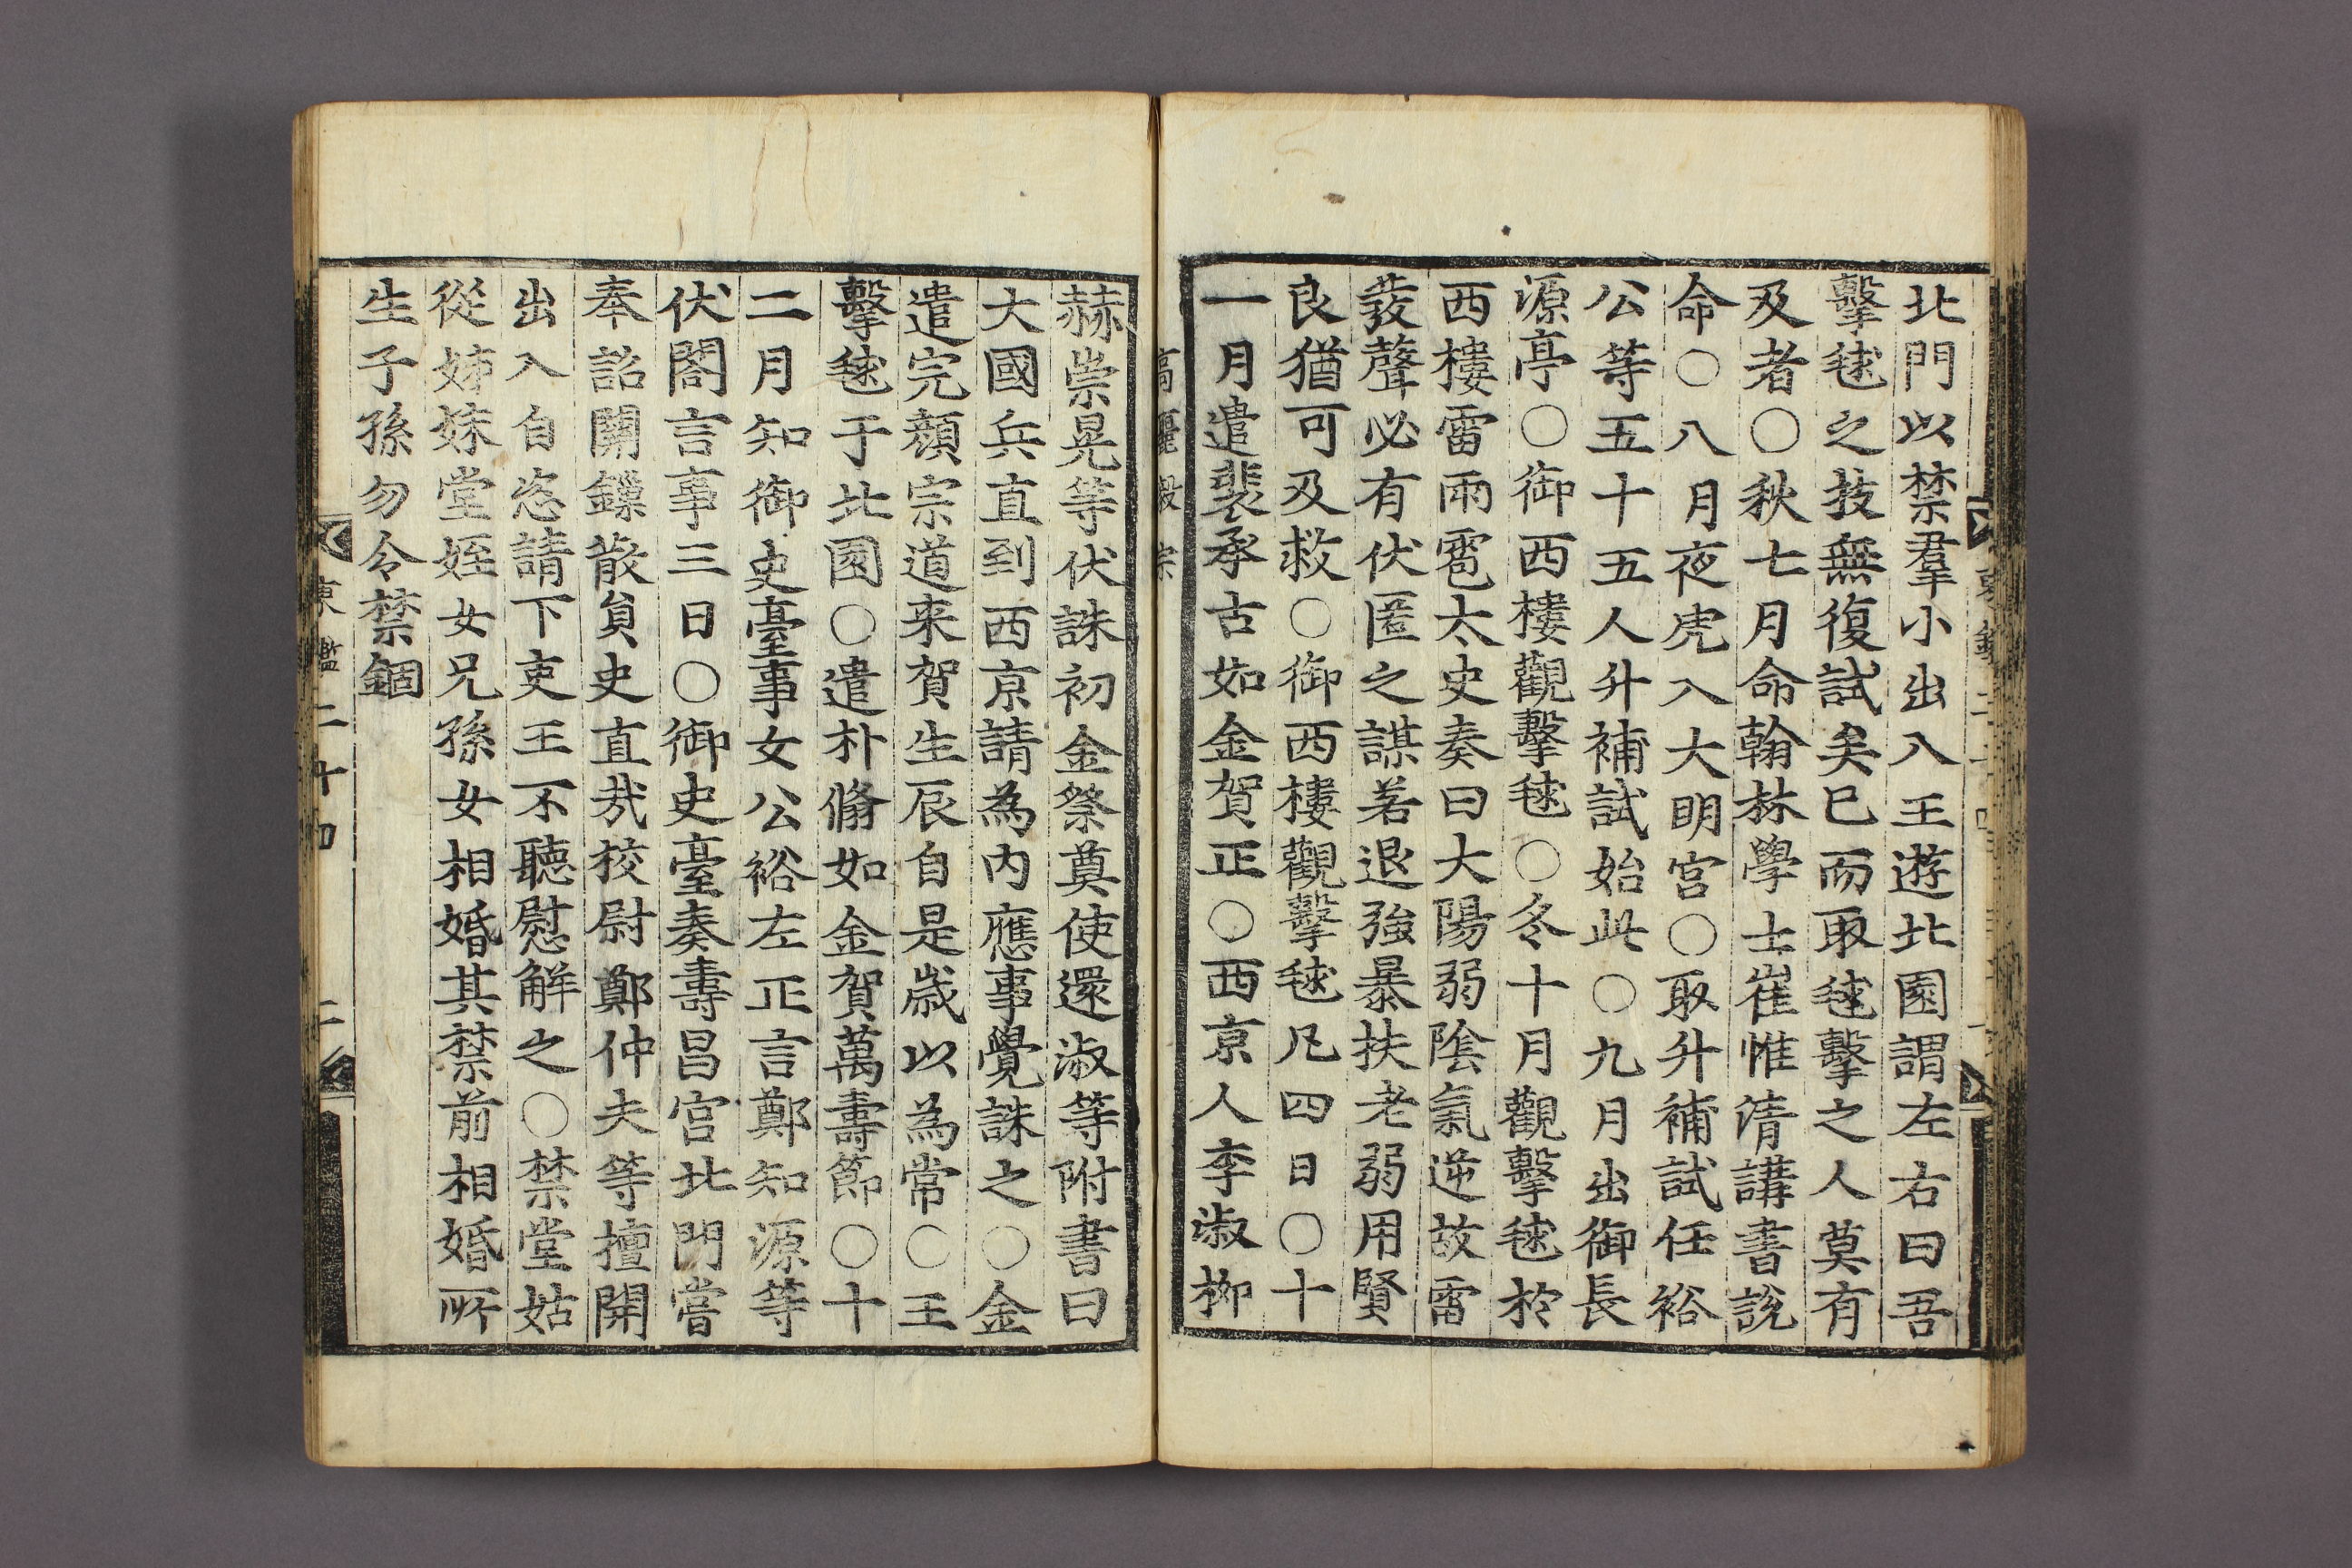 北門以禁羣小出入王遊北園謂左右曰吾
擊毬之技無復試矣已而取毬擊之人莫有
及者○秋七月命翰林學士崔惟淸講書說
命○八月夜虎入大明宮○取升補試任裕
公等五十五人升補試始此○九月出御長
源亭○御西樓觀擊毬○冬十月觀擊毬於
西樓雷雨雹太史奏曰大陽弱陰氣逆故雷
發聲必有伏匿之謀若退強暴扶老弱用賢
良猶可及救○御西樓觀擊毬凡四日○十
一月遣裴承古如金賀正○西京人李淑柳
高麗毅宗
赫崇晃等伏誅初金祭奠使還淑等附書曰
大國兵直到西京請為內應事覺誅之○金
遣完顔宗道来賀生辰自是歲以為常○王
擊毬于北園○遣朴脩如金賀萬壽節○十
二月知御史臺事女公裕左正言鄭知源等
伏閤言事三日○御史臺奏壽昌宮北門嘗
奉詔關鏁散貟史直哉挍尉鄭仲夫等擅開
出入自恣請下吏王不聽慰解之○禁堂姑
從姊妹堂姪女兄孫女相婚其禁前相婚所
生子孫勿令禁錮
東鑑二十四 二